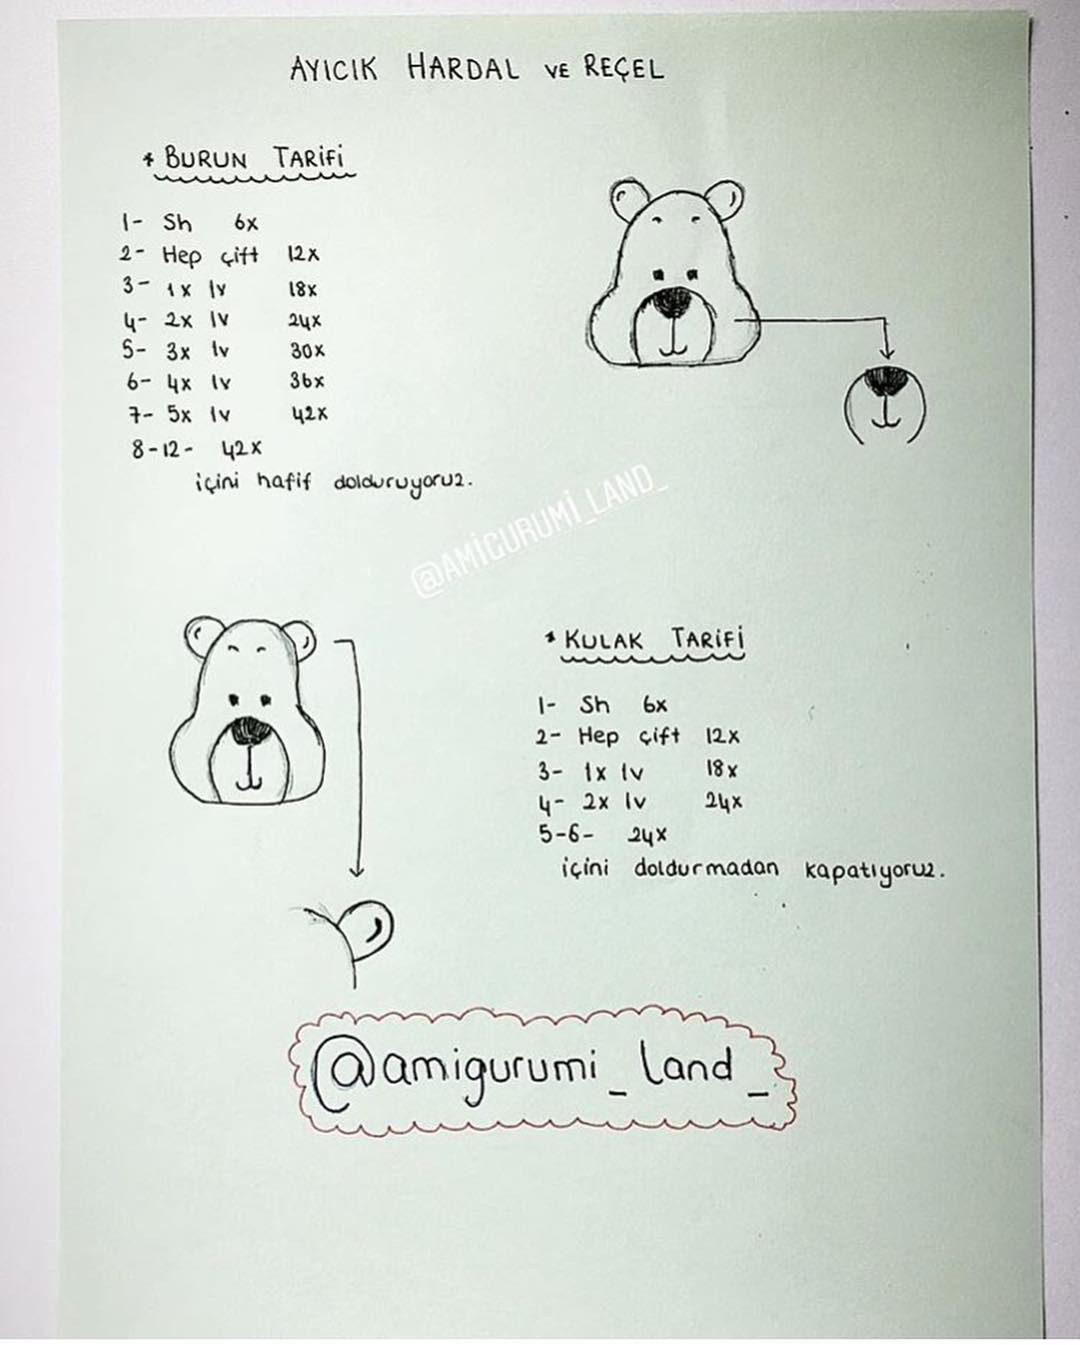 AYICIK HARDAL VE REÇEL
* BURUN TARİFİ
1- Sh 6x
2- Hep çift 12x
3- 1x 1v 18x
4- 2x 1v 24x
5- 3x 1v 30x
6- 4x 1v 36x
7- 5x 1v 42x
8-12- 42x
içini hafif dolduruyoruz.
@AMİGURUMİ_LAND_
* KULAK TARİFİ
1- Sh 6x
2- Hep çift 12x
3- 1x 1v 18x
4- 2x 1v 24x
5-6- 24x
içini doldurmadan kapatıyoruz.
@amigurumi_land_